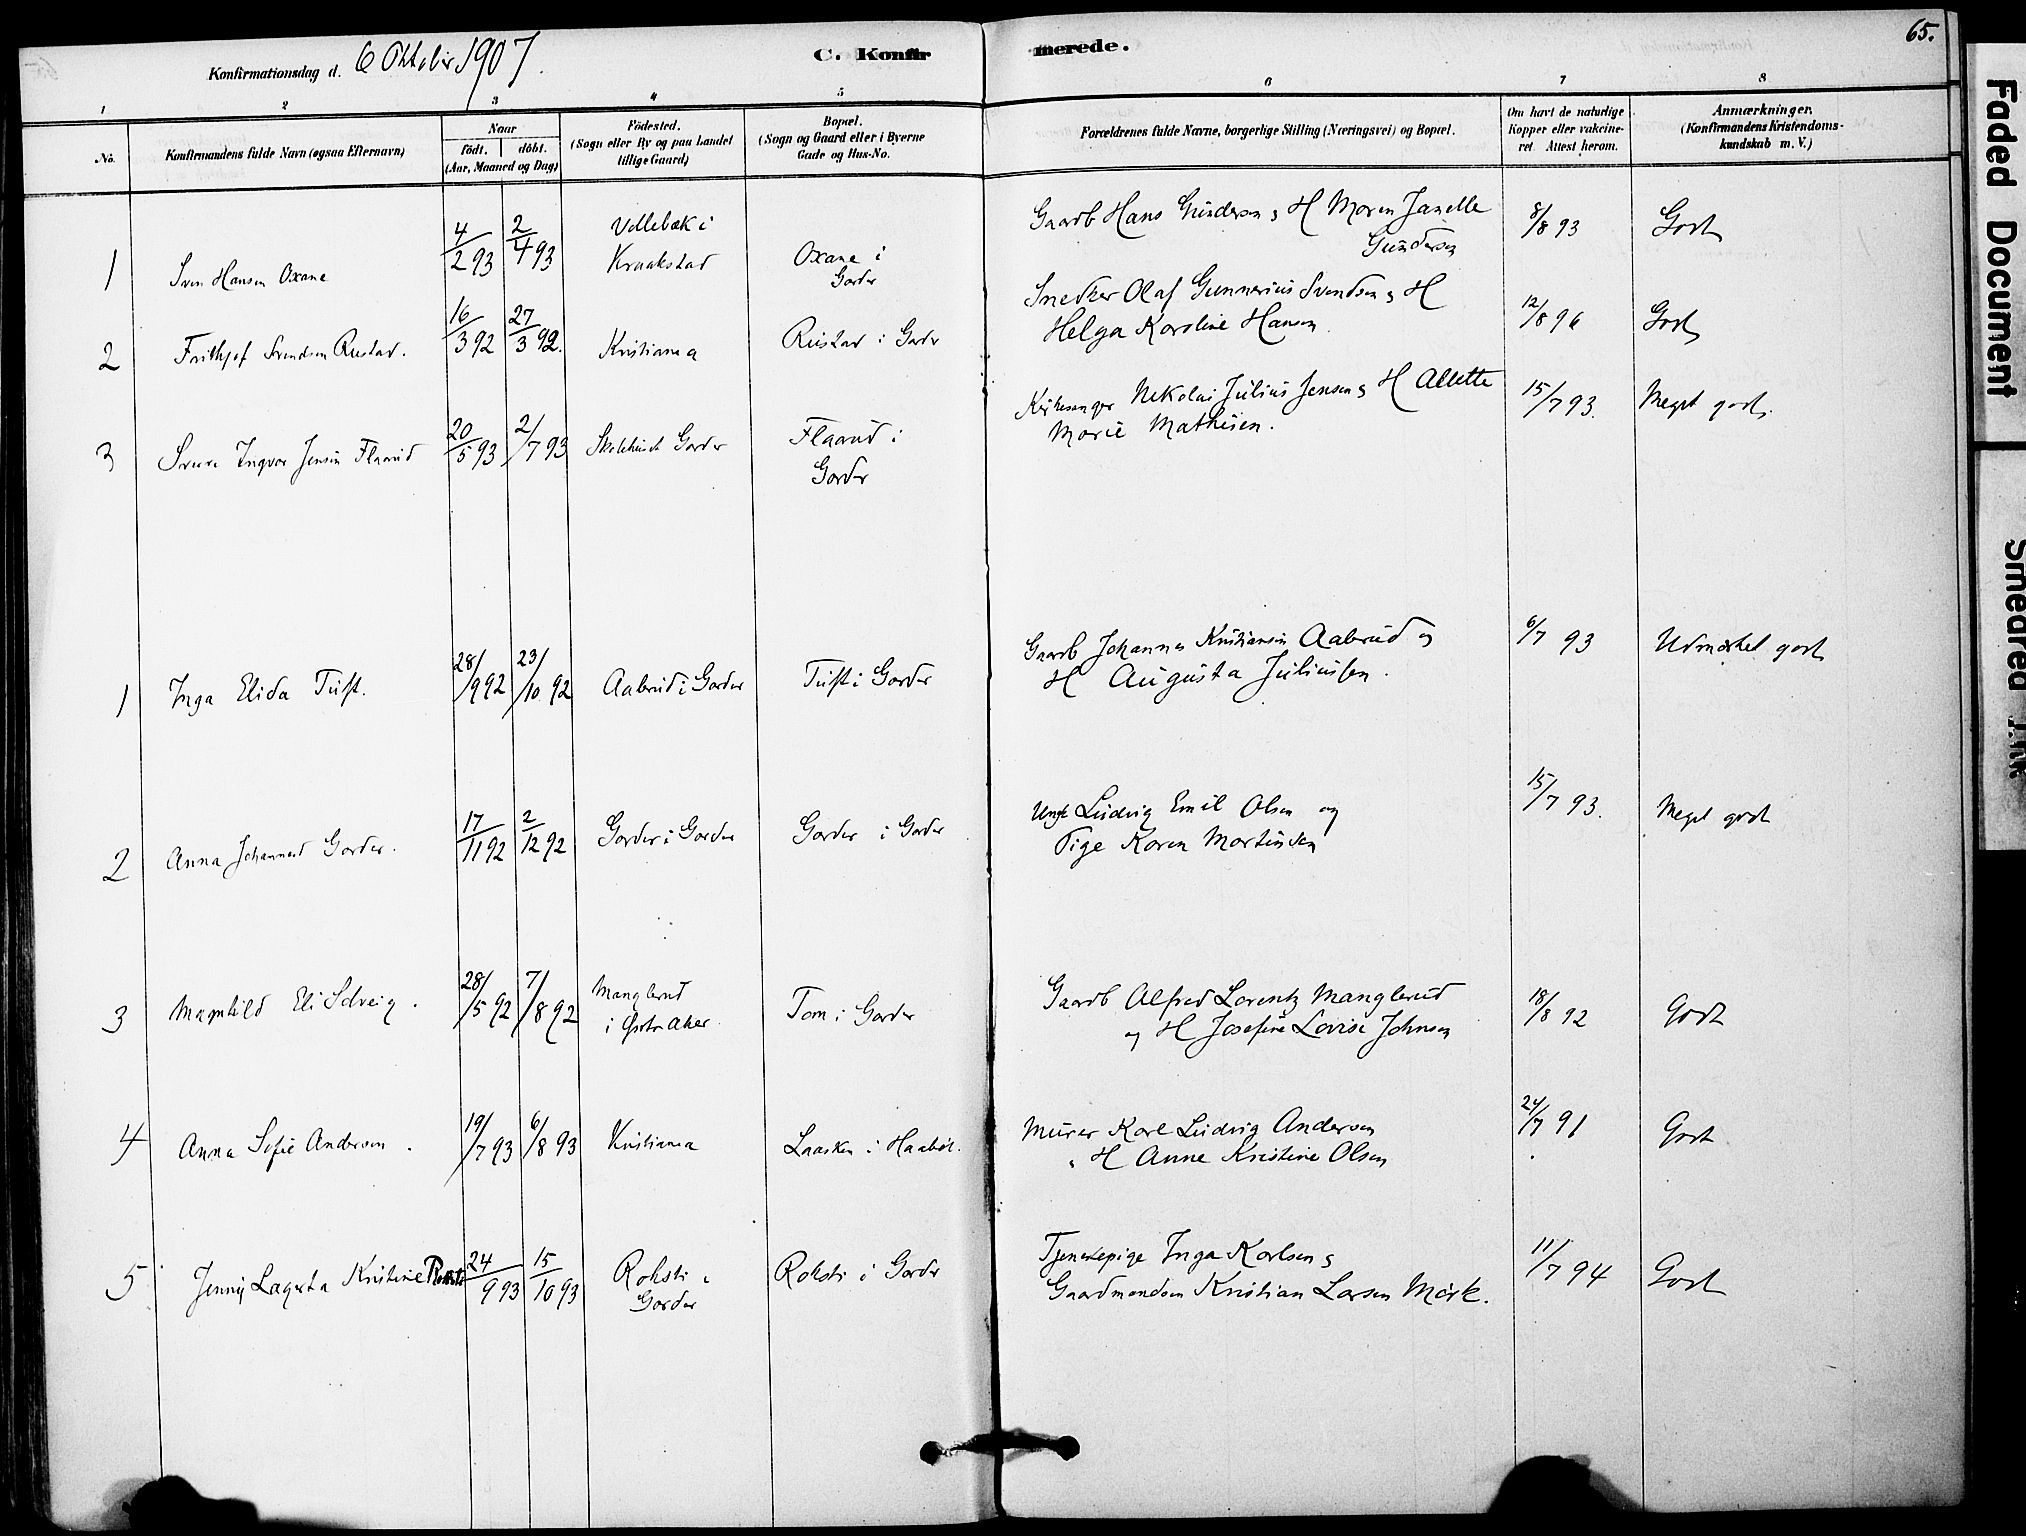 Konfirmationsdag d. 6 Oktober 1907.
C. Konfirmerede.
65.
1 2 3 4 5 6 7 8
No.
Konfirmandens fulde Navn (ogsaa Efternavn)
Naar
födt. döbt.
(Aar, Maaned og Dag)
Födested.
(Sogn eller By og paa Landet
tillige Gaard)
Bopæl.
(Sogn og Gaard eller i Byerne
Gade og Hus-No.
Forældrenes fulde Navne, borgerlige Stilling (Næringsvei) og Bopæl.
Om havt de naturlige
Kopper eller vakcine-
ret. Attest herom.
Anmærkninger.
(Konfirmandens Kristendoms-
kundskab m. V.)
1 Sven Hansen Oxane 4/2 93 2/4 93
Vollebæk i
Kraakstad
Oxane i
Garder
Gaardb Hans Gundersen & H Maren Janette
Gundersen
8/8 93 Godt
2 Frithjof Svendsen Rustad. 16/3 92 27/3 92. Kristiania Rustad i Garder
Snedker Olaf Gunnerius Svendsen & H
Helga Karoline Hansen.
12/8 96 Godt
3 Sverre Ingvar Jensen Flaarud 20/5 93 2/7 93 Skolehuset Garder
Flaarud i
Garder
Kirkesanger Nikolai Julius Jensen & H Alette
Marie Mathisen.
15/7 93. Meget godt.
1 Inga Elida Tuft. 28/9 92 23/10 92 Aaberud i Garder Tuft i Garder
Gaardb Johannes Kristiansen Aaberud og
H Augusta Juliussen.
6/7 93 Udmærket godt
2 Anna Johanned Garder. 17/11 92 2/12 92 Garder i Garder Garder i Garder
Ungk Ludvig Emil Olsen og
Pige Karen Martinsen
15/7 93. Meget godt
3 Magnhild Eli Solveig. 28/5 92 7/8 92
Manglerud
i Østre Aker.
Tom i Garder
Gaardb Alfred Lorentz Manglerud
og H Josefine Lovise Johnsen
18/8 92 Godt
4 Anna Sofie Andersen. 19/7 93 6/8 93 Kristiania Laasken i Haabøl.
Murer Karl Ludvig Andersen
" H Anne Kristine Olsen
24/7 91 Godt
5 Jenny Lagerta Kristine Roksti 24/9 93 15/10 93
Roksti i
Garder
Roksti i Garder
Tjenestepige Inga Karlsen &
Gaardmandssøn Kristian Larsen Mørk.
11/7 94 Godt
Faded Document
Smeared Ink